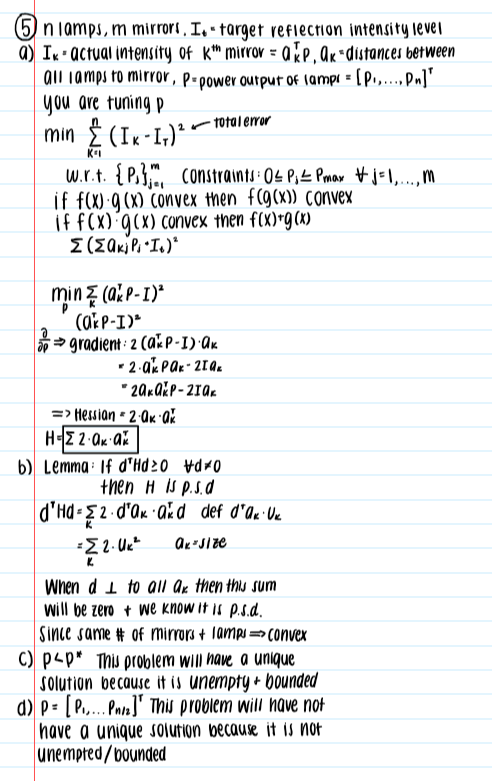 ⑤ n lamps, m mirrors, Iₜ = target reflection intensity level
a) Iₖ = actual intensity of kᵗʰ mirror = aₖᵀp, aₖ = distances between
all lamps to mirror, p = power output of lamps = [p₁,...,pₙ]ᵀ
you are tuning p
min Σₖ₌₁ⁿ (Iₖ - Iₜ)² ← total error
w.r.t. {Pⱼ}ⱼ₌₁ᵐ constraints: 0 ≤ Pⱼ ≤ Pmax ∀ j=1,...,m
if f(x)·g(x) convex then f(g(x)) convex
if f(x)·g(x) convex then f(x)+g(x)
Σ(Σaₖⱼpⱼ·Iₜ)²
min_p Σₖ (aₖᵀp - I)²
(aₖᵀp - I)²
∂/∂p ⇒ gradient: 2(aₖᵀp - I)·aₖ
= 2·aₖᵀpaₖ - 2Iaₖ
= 2aₖaₖᵀp - 2Iaₖ
=> Hessian = 2·aₖ·aₖᵀ
H = Σ 2·aₖ·aₖᵀ
b) Lemma: If dᵀHd ≥ 0 ∀d≠0
then H is p.s.d
dᵀHd = Σₖ 2·dᵀaₖ·aₖᵀd def dᵀaₖ·Uₖ
= Σₖ 2·Uₖ² aₖ = size
When d ⊥ to all aₖ then this sum
will be zero + we know it is p.s.d.
Since same # of mirrors + lamps ⇒ convex
c) p<p* This problem will have a unique
solution because it is unempty + bounded
d) p = [p₁,... pₙ/₂]ᵀ This problem will have not
have a unique solution because it is not
unempted/bounded